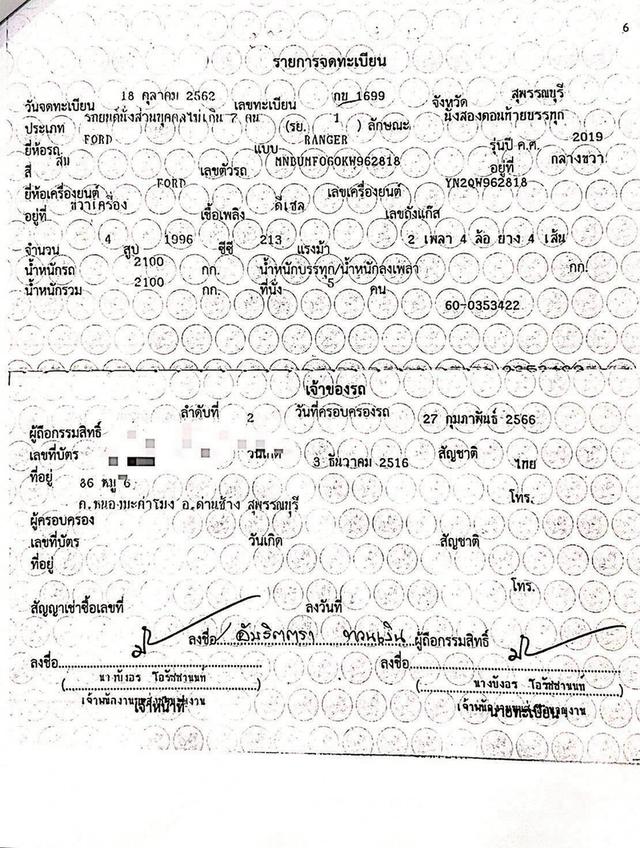 6
รายการจดทะเบียน
วันจดทะเบียน 18 ตุลาคม 2562 เลขทะเบียน กย 1699 จังหวัด สุพรรณบุรี
ประเภท รถยนต์นั่งส่วนบุคคลไม่เกิน 7 คน (รย. 1 ) ลักษณะ นั่งสองตอนท้ายบรรทุก
ยี่ห้อรถ FORD แบบ RANGER รุ่นปี ค.ศ. 2019
สี ส้ม เลขตัวรถ MNBUMFO60KW962818 อยู่ที่ กลางขวา
ยี่ห้อเครื่องยนต์ FORD เลขเครื่องยนต์ YN2QW962818
อยู่ที่ ขวาเครื่อง เชื้อเพลิง ดีเซล เลขถังแก๊ส
จำนวน 4 สูบ 1996 ซีซี 213 แรงม้า 2 เพลา 4 ล้อ ยาง 4 เส้น
น้ำหนักรถ 2100 กก. น้ำหนักบรรทุก/น้ำหนักลงเพลา กก.
น้ำหนักรวม 2100 กก. ที่นั่ง 5 คน
60-0353422
เจ้าของรถ
ลำดับที่ 2 วันที่ครอบครองรถ 27 กุมภาพันธ์ 2566
ผู้ถือกรรมสิทธิ์
เลขที่บัตร วันเกิด 3 ธันวาคม 2516 สัญชาติ ไทย
ที่อยู่ 86 หมู่ 6 โทร.
ต.หนองมะค่าโมง อ.ด่านช้าง สุพรรณบุรี
ผู้ครอบครอง
เลขที่บัตร วันเกิด สัญชาติ
ที่อยู่
โทร.
สัญญาเช่าซื้อเลขที่ ลงวันที่
ลงชื่อ ผู้ถือกรรมสิทธิ์
ลงชื่อ ลงชื่อ
(นางบังอร ) (นางบังอร )
เจ้าหน้าที่ นายทะเบียน